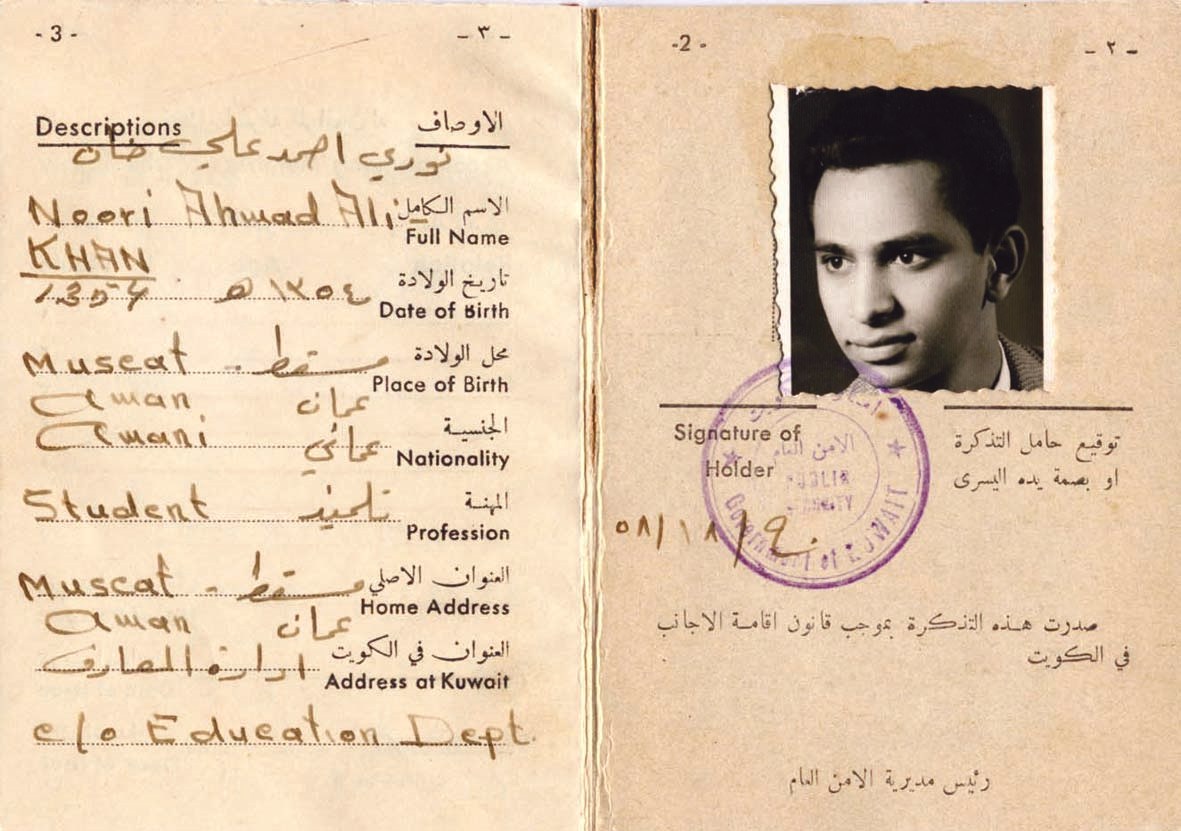 - 3 -
- ٣ -
Descriptions
الاوصاف
نوري احمد علي خان
Noori Ahmad Ali
الاسم الكامل
Full Name
KHAN
تاريخ الولادة
1354
١٣٥٤ هـ
Date of Birth
محل الولادة
Muscat - مسقط
Place of Birth
Aman عمان
الجنسية
Amani عماني
Nationality
المهنة
Student تلميذ
Profession
العنوان الاصلي
Muscat - مسقط
Home Address
Aman عمان
العنوان في الكويت
ادارة المعارف
Address at Kuwait
c/o Education Dept.
- 2 -
- ٢ -
Signature of
Holder
توقيع حامل التذكرة
او بصمة يده اليسرى
الامن العام
PUBLIC
SECURITY
Government of KUWAIT
صدرت هذه التذكرة بموجب قانون اقامة الاجانب
في الكويت
رئيس مديرية الامن العام